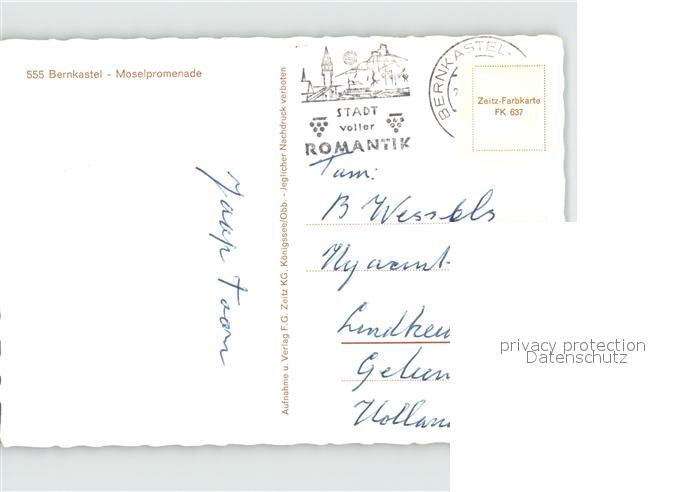 555 Bernkastel - Moselpromenade
Aufnahme u. Verlag F.G. Zeitz KG, Königssee/Obb. - Jeglicher Nachdruck verboten
STADT
voller
ROMANTIK
BERNKASTEL-
Zeitz-Farbkarte
FK 637
Jaap Toon
Fam:
B Wessels
Hyacint
Lindheu
Gelun
Hollan
privacy protection
Datenschutz